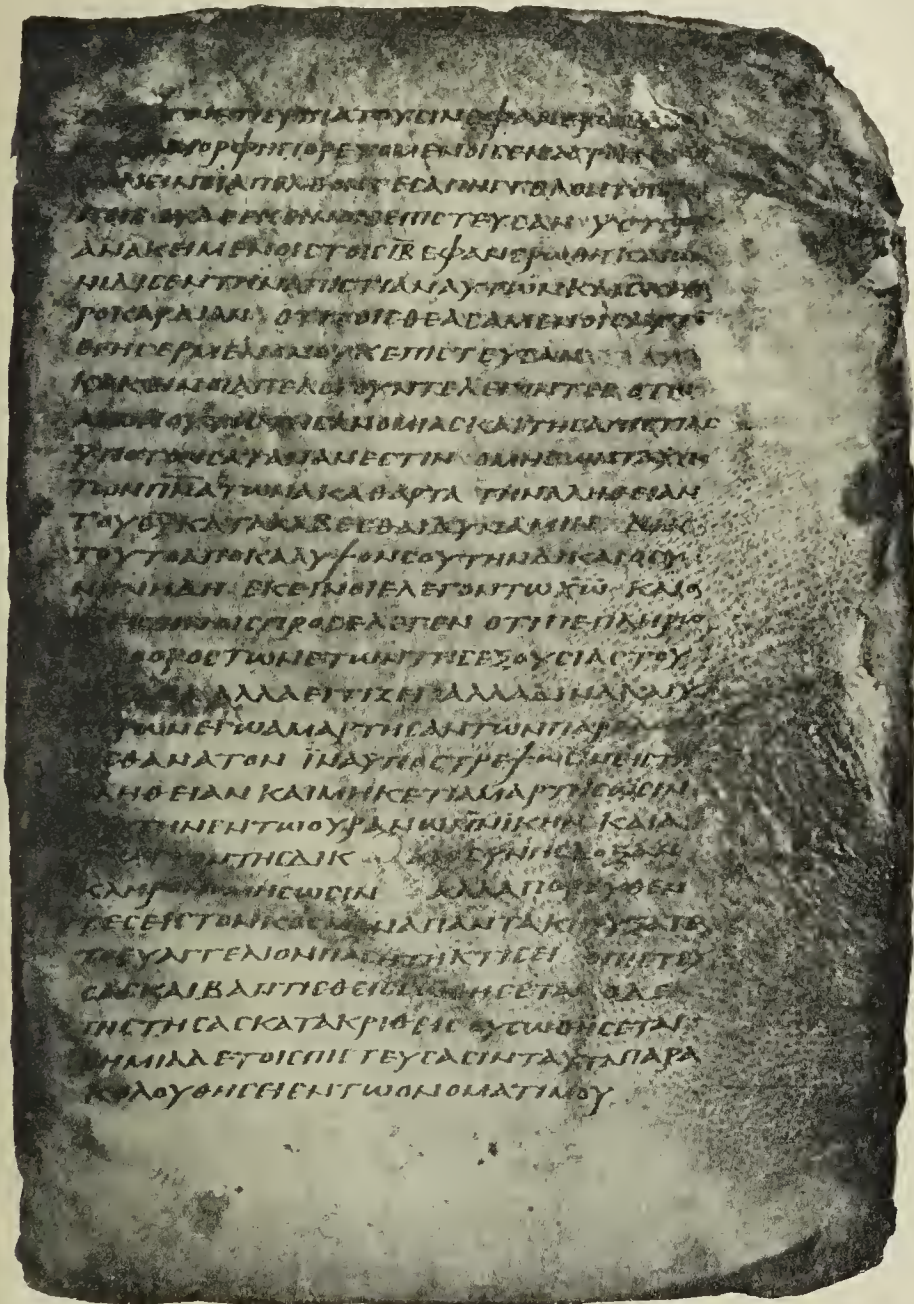 ΠΕΡΙΠΑΤΟΥCΙΝ ΕΦΑΝΕΡΩ
ΜΟΡΦΗ ΠΟΡΕΥΟΜΕΝΟΙC
ΑΠΕΛΘΟΝΤΕC ΑΠΗΓΓΙΛΟΝ ΤΟΙC
ΕΠΙCΤΕΥCΑΝ ΥCΤΕ
ΑΝΑΚΕΙΜΕΝΟΙC ΤΟΙC ΙΑ ΕΦΑΝΕΡΩΘΗ
ΔΙCΕΝ ΤΗΝ ΑΠΙCΤΙΑΝ ΑΥΤΩΝ ΚΑΙ CΚΛΗ
ΡΟΚΑΡΔΙΑΝ ΟΤΙ ΤΟΙC ΘΕΑCΑΜΕΝΟΙC ΑΥΤΟ
ΕΓΗΓΕΡΜΕΝΟΝ ΟΥΚ ΕΠΙCΤΕΥCΑΝ
ΚΑΚΕΙΝΟΙ ΑΠΕΛΟΓΟΥΝΤΕ ΛΕΓΟΝΤΕC ΟΤΙ Ο
ΑΙΩΝ ΟΥΤΟC ΤΗC ΑΝΟΜΙΑC ΚΑΙ ΤΗC ΑΠΙCΤΙΑC
ΥΠΟ ΤΟΝ CΑΤΑΝΑΝ ΕCΤΙΝ Ο ΜΗ ΕΩΝ ΤΑ ΥΠΟ
ΤΩΝ ΠΝΑΤΩΝ ΑΚΑΘΑΡΤΑ ΤΗΝ ΑΛΗΘΕΙΑΝ
ΤΟΥ ΘΥ ΚΑΤΑΛΑΒΕCΘΑΙ ΔΥΝΑΜΙΝ ΔΙΑ
ΤΟΥΤΟ ΑΠΟΚΑΛΥΨΟΝ CΟΥ ΤΗΝ ΔΙΚΑΙΟCΥ
ΝΗΝ ΗΔΗ ΕΚΕΙΝΟΙ ΕΛΕΓΟΝ ΤΩ ΧΩ ΚΑΙ Ο
ΧC ΕΚΕΙΝΟΙC ΠΡΟCΕΛΕΓΕΝ ΟΤΙ ΠΕΠΛΗΡΩ
Ο ΟΡΟC ΤΩΝ ΕΤΩΝ ΤΗC ΕΞΟΥCΙΑC ΤΟΥ
ΑΛΛΑ ΕΓΓΙΖΕΙ ΑΛΛΑ ΔΙΝΑ ΚΑΙ Υ
ΩΝ ΕΓΩ ΑΜΑΡΤΗCΑΝΤΩΝ ΠΑΡ
ΘΑΝΑΤΟΝ ΙΝΑ ΥΠΟCΤΡΕΨΩCΙΝ ΕΙC ΤΗ
ΑΛΗΘΕΙΑΝ ΚΑΙ ΜΗΚΕΤΙ ΑΜΑΡΤΗCΩCΙΝ
ΤΗΝ ΕΝ ΤΩ ΟΥΡΑΝΩ ΠΝΙΚΗΝ ΚΑΙ Α
ΤΗC ΔΙΚΑΙΟCΥΝΗC ΔΟΞΑΝ
ΚΛΗΡΟΝΟΜΗCΩCΙΝ ΑΛΛΑ ΠΟΡΕΥΘΕΝ
ΤΕC ΕΙC ΤΟΝ ΚΟCΜΟΝ ΑΠΑΝΤΑ ΚΗΡΥΞΑΤΕ
ΤΟ ΕΥΑΓΓΕΛΙΟΝ ΠΑCΗ ΤΗ ΚΤΙCΕΙ Ο ΠΙCΤΕΥ
CΑC ΚΑΙ ΒΑΠΤΙCΘΕΙC CΩΘΗCΕΤΑΙ Ο ΔΕ Α
ΠΙCΤΗCΑC ΚΑΤΑΚΡΙΘΕΙC ΟΥ CΩΘΗCΕΤΑΙ
CΗΜΙΑ ΔΕ ΤΟΙC ΠΙCΤΕΥCΑCΙΝ ΤΑΥΤΑ ΠΑΡΑ
ΚΟΛΟΥΘΗCΕΙ ΕΝ ΤΩ ΟΝΟΜΑΤΙ ΜΟΥ